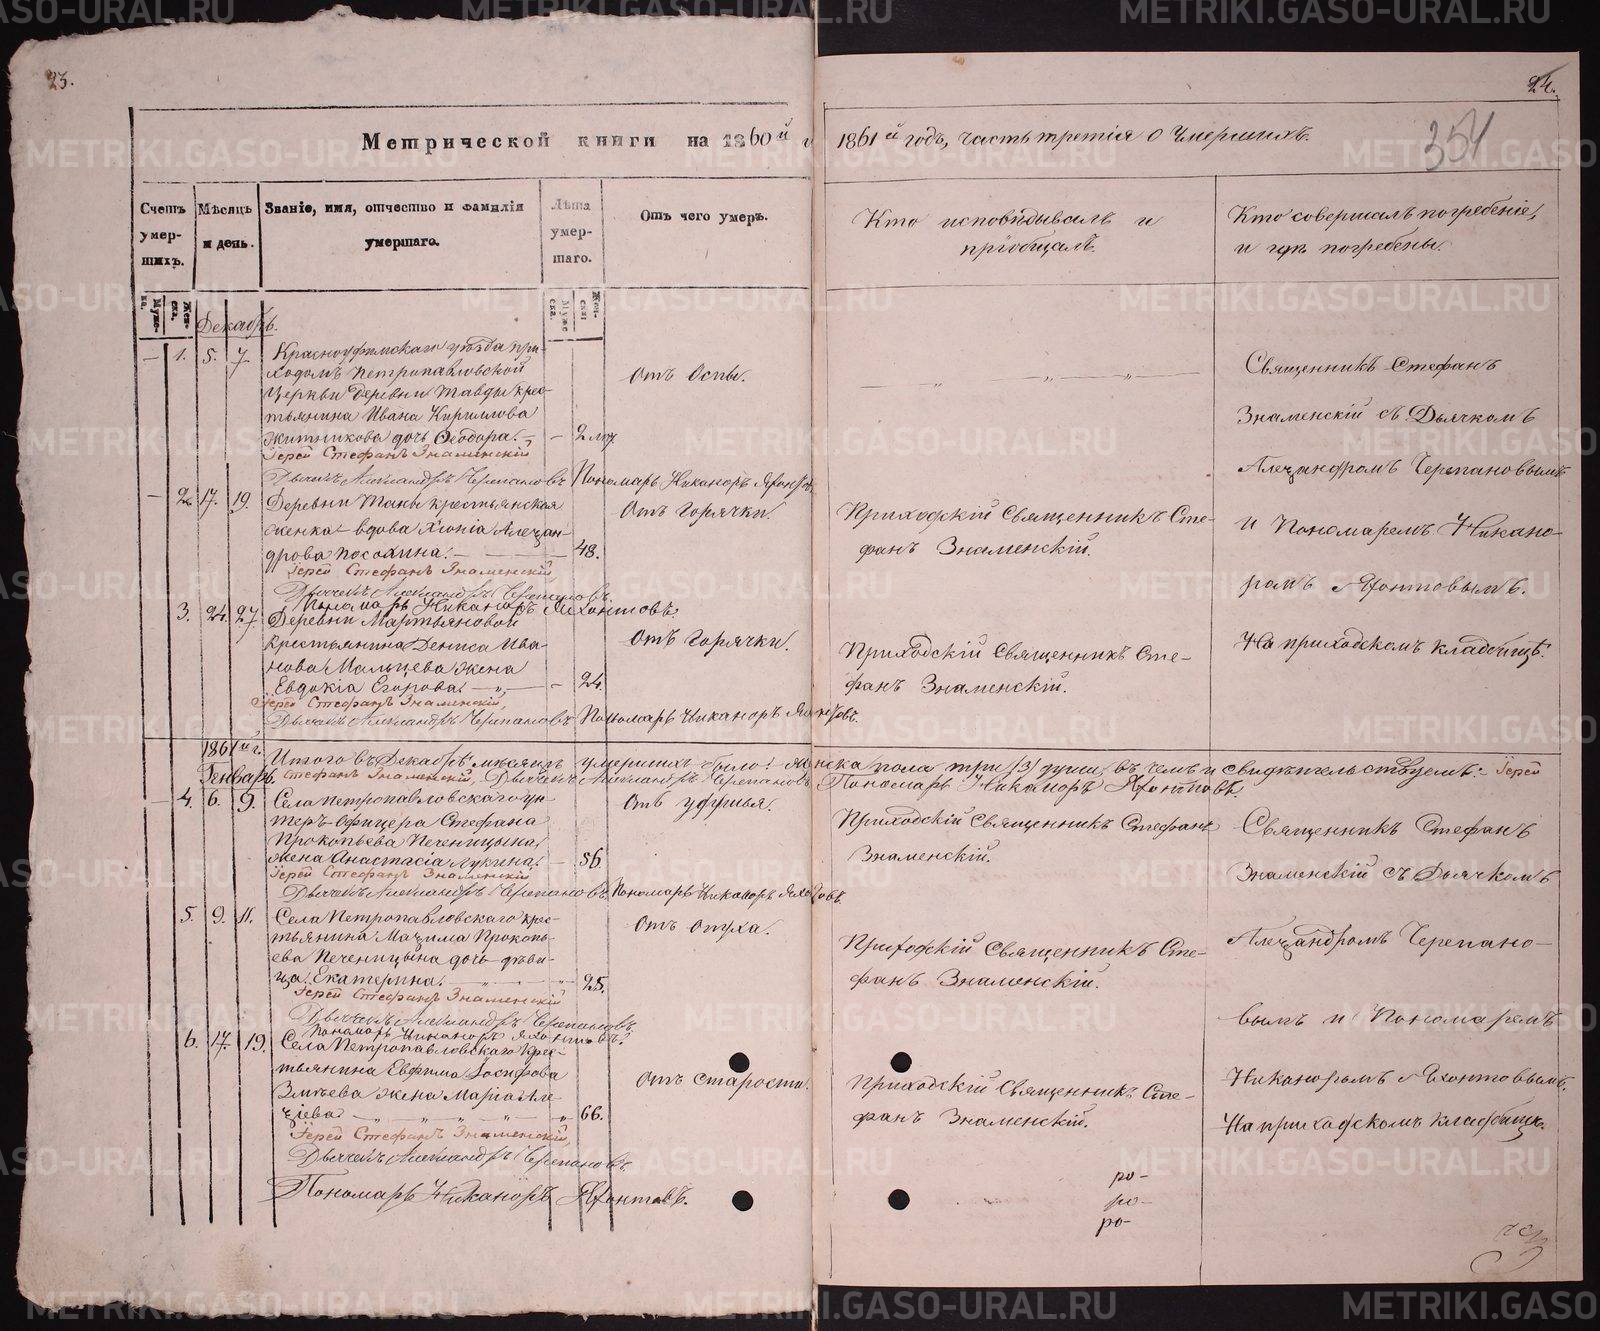 23.
24.
354
Метрической книги на 1860й г
1861й годъ, часть третія о умершихъ.
Счетъ умер-шихъ.
Мѣсяцъ и день.
Званіе, имя, отчество и фамилія умершаго.
Лѣта умер-шаго.
Отъ чего умеръ.
Кто исповѣдывалъ и пріобщалъ.
Кто совершалъ погребеніе, и гдѣ погребены.
Декабрь.
— 1. 5. 7. Красноуфимскаго уѣзда при-
ходомъ Петропавловской
Церкви Деревни Тавды крес-
тьянина Ивана Кириллова
Житникова дочь Ѳеодора. — — 2
Отъ Оспы.
Іерей Стефанъ Знаменскій
Дьячекъ Александръ Черепановъ Пономарь Никаноръ Яхонтовъ
— 2. 17. 19. Деревни крестьянская
женка вдова Хіонія Алеѯан-
дрова Посохина. — 48.
Отъ Горячки.
Приходскій Священникъ Сте-
фанъ Знаменскій.
Іерей Стефанъ Знаменскій,
Дьячекъ Александръ Черепановъ.
Пономарь Никаноръ Яхонтовъ.
3. 24. 27. Деревни Мартьяновой
крестьянина Дениса Ива-
нова Мальцева жена
Евдокія Егорова. — 24.
Отъ Горячки.
Приходскій Священникъ Сте-
фанъ Знаменскій.
Іерей Стефанъ Знаменскій,
Дьячекъ Александръ Черепановъ Пономарь Никаноръ Яхонтовъ.
Священникъ Стефанъ
Знаменскій съ Дьячкомъ
Алеѯандромъ Черепановымъ
и Пономаремъ Никано-
ромъ Яхонтовымъ.
На приходскомъ кладбищѣ.
Итого въ Декабрѣ мѣсяцѣ умершихъ было: женска пола три /3/ души, въ чемъ и свидѣтельствуемъ: Іерей
Стефанъ Знаменскій. Дьячекъ Александръ Черепановъ Пономарь Никаноръ Яхонтовъ.
1861й г.
Генварь.
— 4. 6. 9. Села Петропавловскаго ун-
теръ-офицера Стефана
Прокопьева Печеницына
жена Анастасія Лукина. — 56.
Отъ удушья.
Приходскій Священникъ Стефанъ
Знаменскій.
Іерей Стефанъ Знаменскій
Дьячекъ Александръ Черепановъ. Пономарь Никаноръ Яхонтовъ.
5. 9. 11. Села Петропавловскаго крес-
тьянина Маѯима Прокопь-
ева Печеницына дочь дѣви-
ца Екатерина. 25.
Отъ опуха.
Приходскій Священникъ Сте-
фанъ Знаменскій.
Іерей Стефанъ Знаменскій
Дьячекъ Александръ Черепановъ.
Пономарь Никаноръ Яхонтовъ.
6. 17. 19. Села Петропавловскаго крес-
тьянина Евфима Іосифова
Змѣева жена Марія Але-
ѯіева 66.
Отъ старости.
Приходскій Священникъ Сте-
фанъ Знаменскій.
Іерей Стефанъ Знаменскій,
Дьячекъ Александръ Черепановъ.
Пономарь Никаноръ Яхонтовъ.
Священникъ Стефанъ
Знаменскій съ Дьячкомъ
Алеѯандромъ Черепано-
вымъ и Пономаремъ
Никаноромъ Яхонтовымъ.
На приходскомъ кладбищѣ.
ро-
ро-
ро-
METRIKI.GASO-URAL.RU